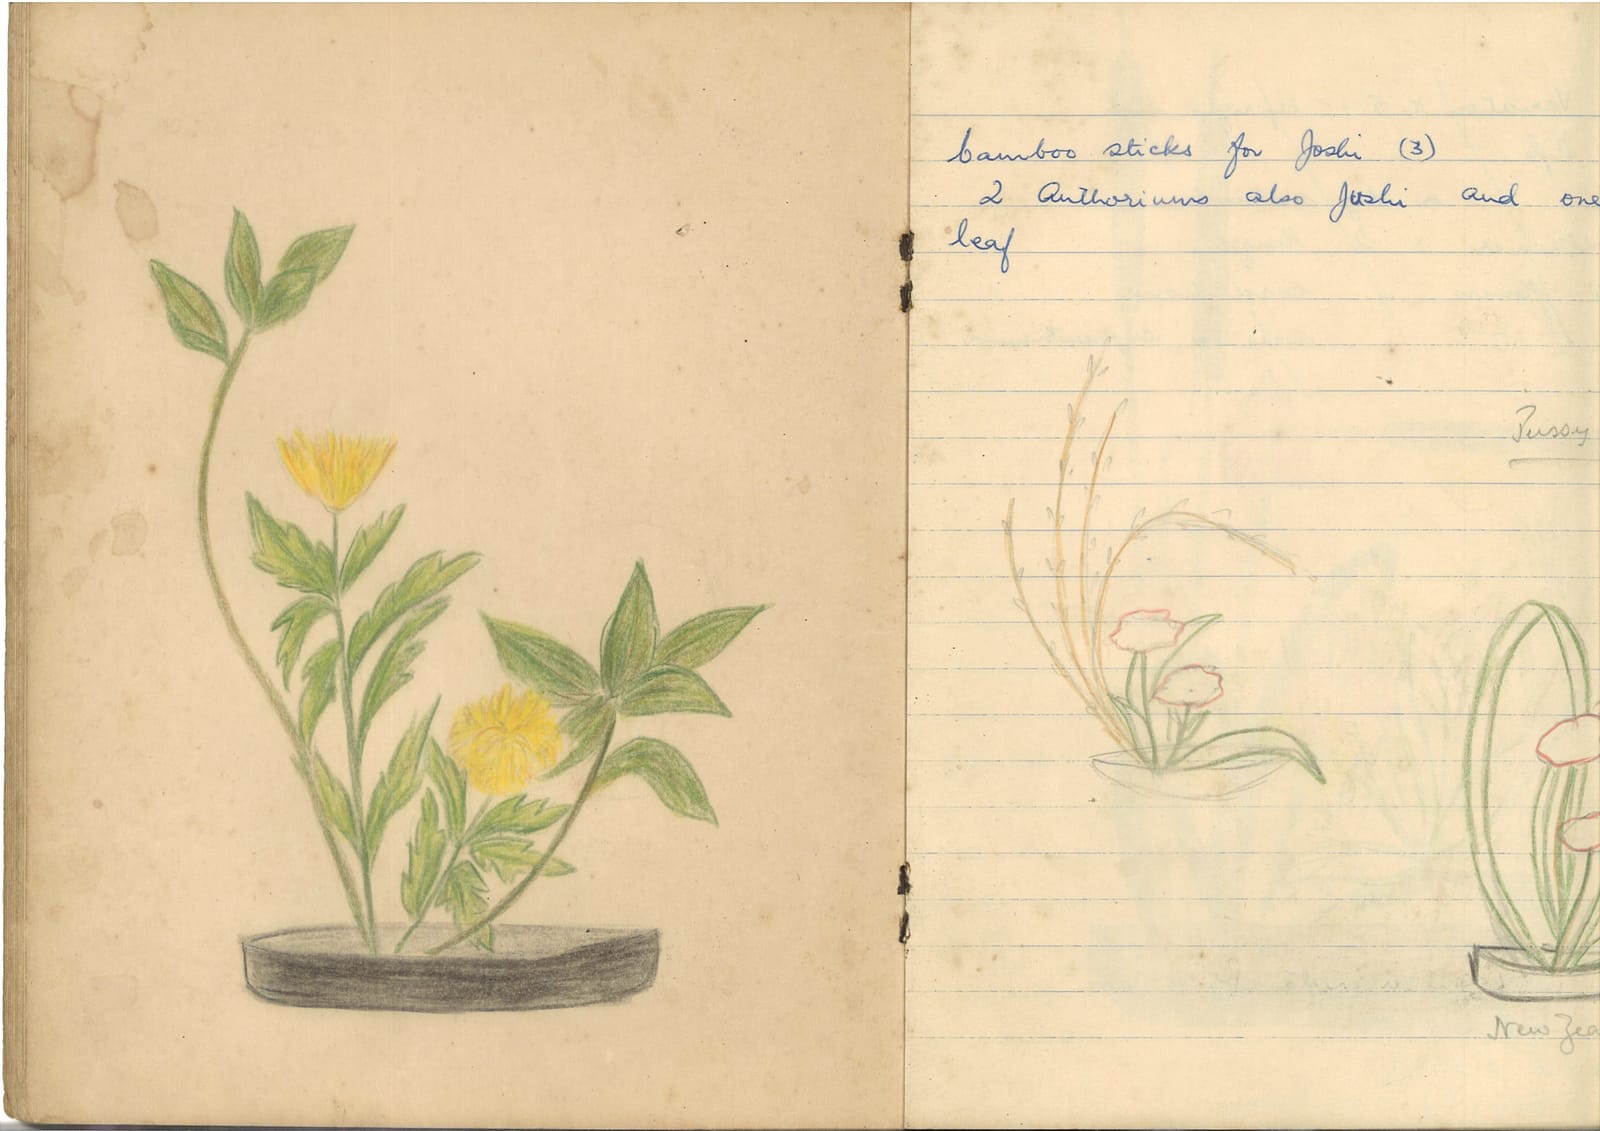 bamboo sticks for Joshi (3)
2 Anthoriums also Jushi and one
leaf
Pussy
New Zea